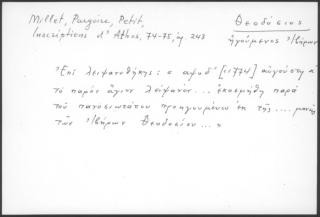 Millet, Pargoire, Petit, Θεοδόσιος
Inscriptions d'Athos, 74-75, ἀρ. 243 ἡγούμενος Ἰβήρων
Ἐπὶ λειψανοθήκης: « αψοδ' [=1774] αὐγούστῃ
τὸ παρὸν ἅγιον λείψανον... ἐκοσμήθη παρὰ
τοῦ πανοσιωτάτου προηγουμένου ἐκ τῆς .... μονῆς
τῶν Ἰβήρων Θεοδοσίου... »